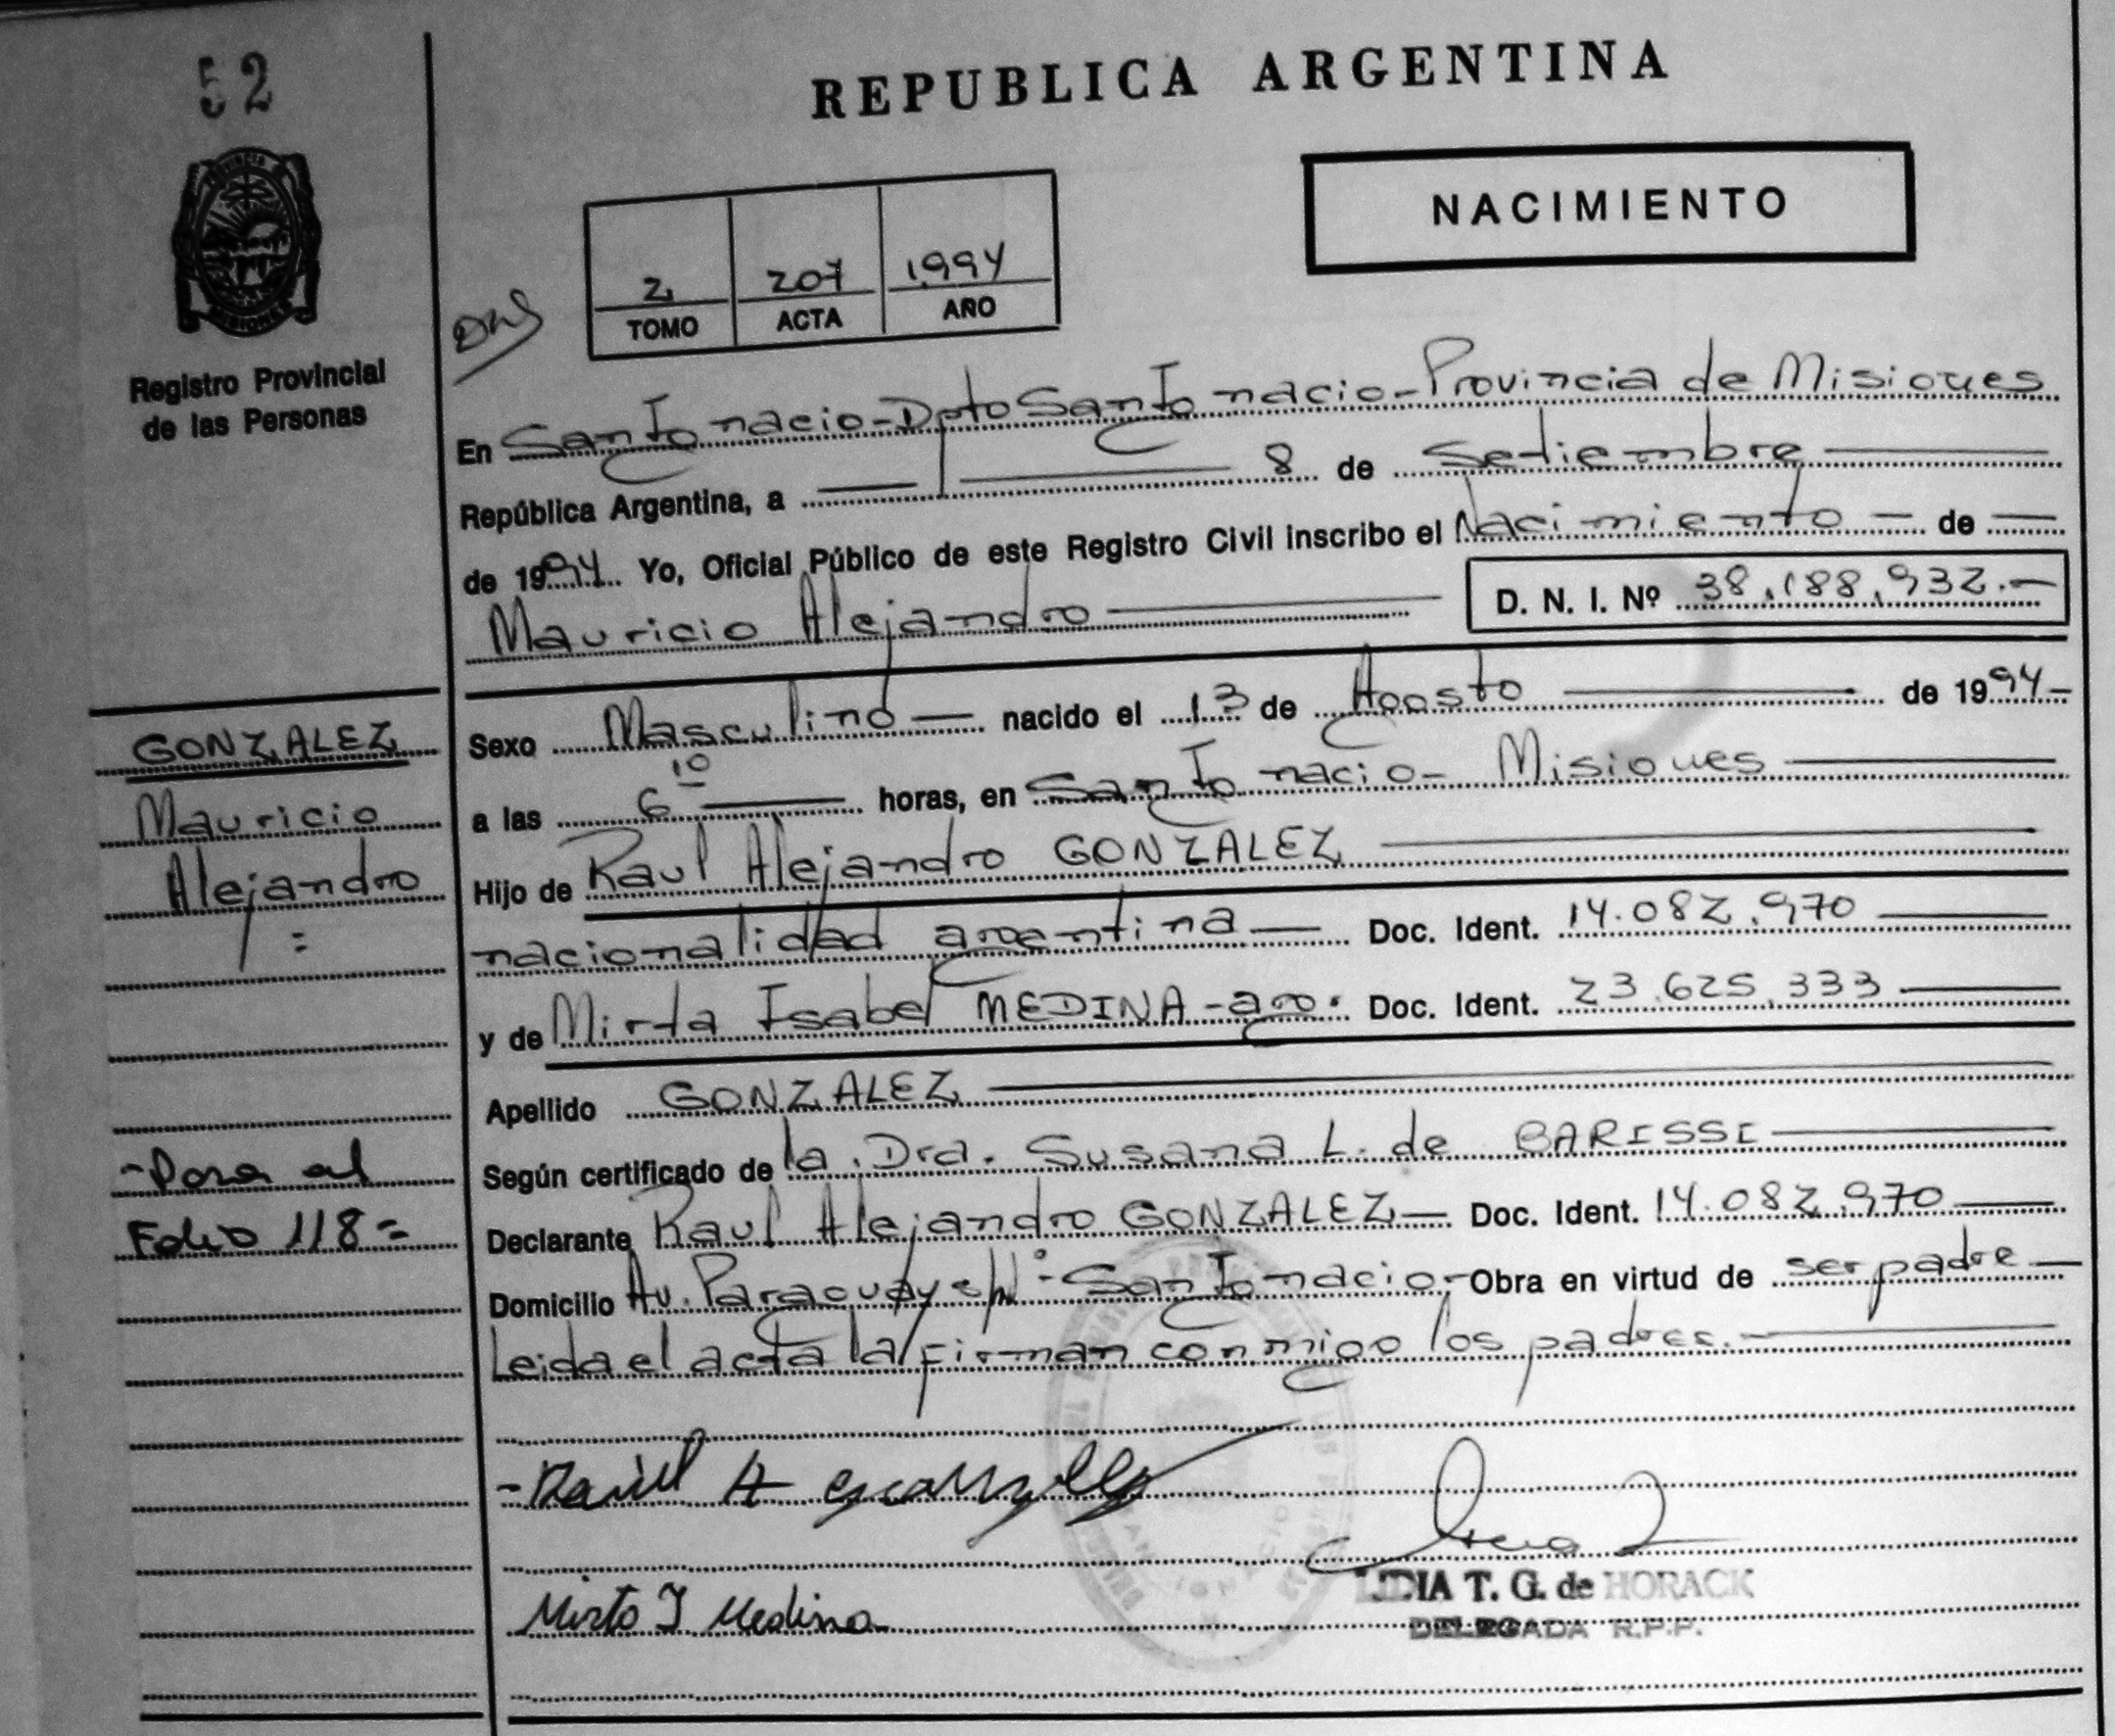 52
REPUBLICA ARGENTINA
NACIMIENTO
2 207 1.994
TOMO ACTA AÑO
Registro Provincial
de las Personas
En San Ignacio - Dpto San Ignacio - Provincia de Misiones
República Argentina, a 8 de Setiembre
de 1994 Yo, Oficial Público de este Registro Civil inscribo el Nacimiento de
Mauricio Alejandro D. N. I. Nº 38.188.932.-
Sexo Masculino nacido el 13 de Agosto de 1994-
a las 6 10 horas, en San Ignacio - Misiones
Hijo de Raul Alejandro GONZALEZ
nacionalidad argentina Doc. Ident. 14.082.970
y de Mirta Isabel MEDINA - arg. Doc. Ident. 23.625.333
Apellido GONZALEZ
Según certificado de la Dra. Susana L. de BARISSI
Declarante Raul Alejandro GONZALEZ - Doc. Ident. 14.082.970
Domicilio Av. Paraguay s/Nº - San Ignacio - Obra en virtud de ser padre
Leida el acta la firman conmigo los padres.-
GONZALEZ
Mauricio
Alejandro
=
- Pasa al
Folio 118 =
Mirta I Medina
LIDIA T. G. de HORACK
DELEGADA R.P.P.